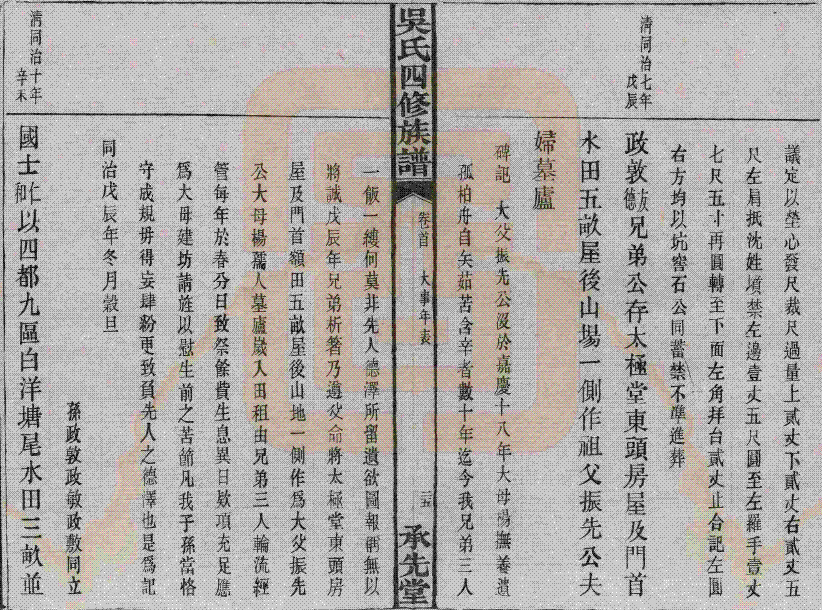 清同治七年
戊辰
議定以塋心發尺裁尺過量上貳丈下貳丈右貳丈五
尺左肩抵沈姓墳禁左邊壹丈五尺圓至左羅手壹丈
七尺五寸再圓轉至下面左角拜台貳丈止合記左圓
右方均以坑窖石公同蓄禁不準進葬
政敦德友兄弟公存太極堂東頭房屋及門首
水田五畝屋後山場一側作祖父振先公夫
婦墓廬
碑記 大父振先公歿於嘉慶十八年大母楊撫養遺
孤柏舟自矢茹苦含辛者數十年迄今我兄弟三人
吳氏四修族譜
卷首 大事年表
三五
承先堂
一飯一縷何莫非先人德澤所留遺欲圖報稱無以
將誠戊辰年兄弟析箸乃遵父命將太極堂東頭房
屋及門首額田五畝屋後山地一側作為大父振先
公大母楊孺人墓廬歲入田租由兄弟三人輪流經
管每年於春分日致祭餘費生息異日欵項充足應
為大母建坊請旌以慰生前之苦節凡我子孫當恪
守成規毋得妄肆紛更致負先人之德澤也是為記
同治戊辰年冬月穀旦
孫政敦政敏政敷同立
清同治十年
辛未
國士仁和以四都九區白洋塘尾水田三畝並